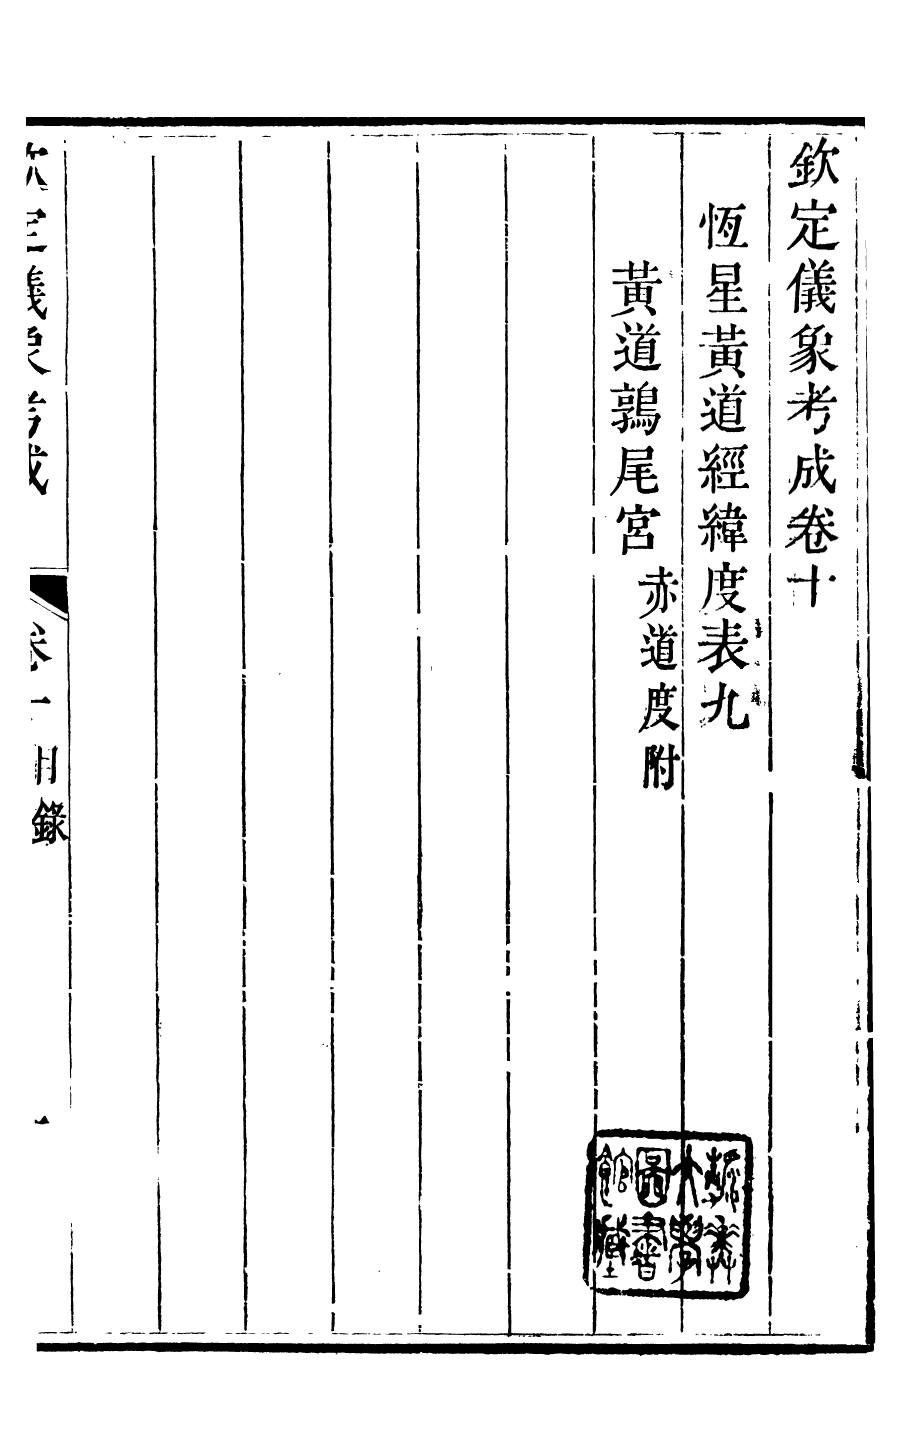 欽定儀象考成卷十
恆星黃道經緯度表九
黃道鶉尾宮 赤道度附
欽定儀象考成 卷十目錄